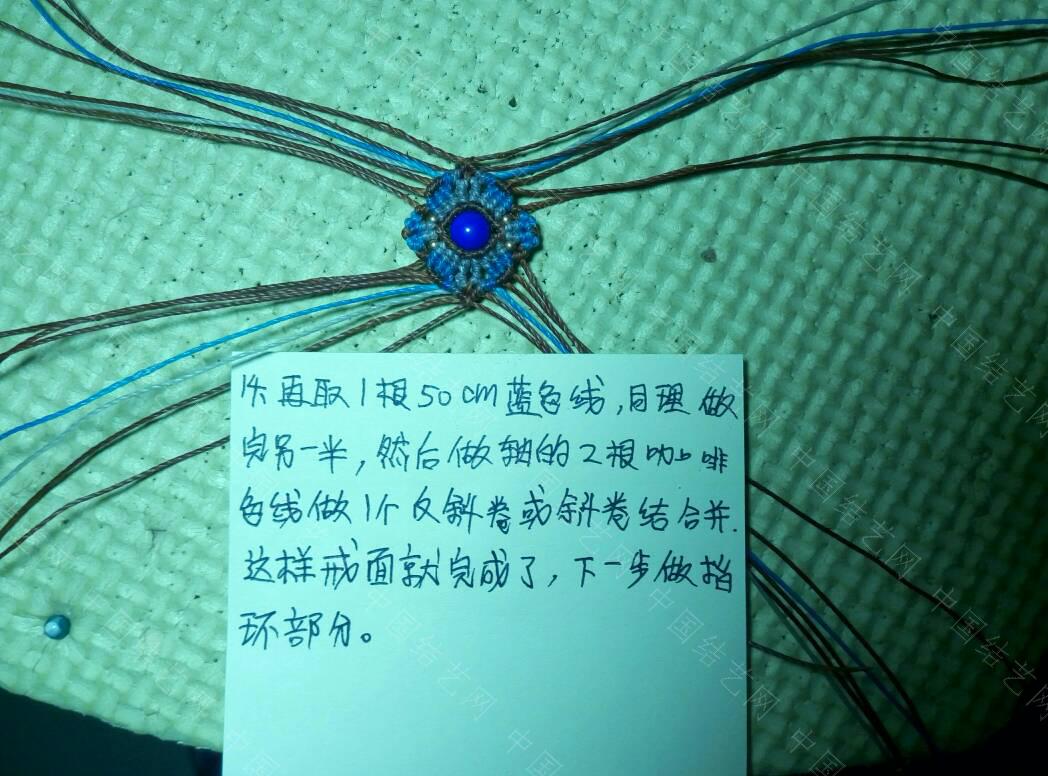 14、再取1根50cm蓝色线,同理做
完另一半,然后做轴的2根咖啡
色线做1个反斜卷或斜卷结合并.
这样戒面就完成了,下一步做指
环部分。
中国结艺网